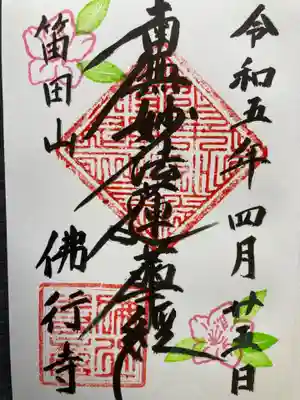 令和五年四月廿五日
南無妙法蓮華経
笛田山 佛行寺